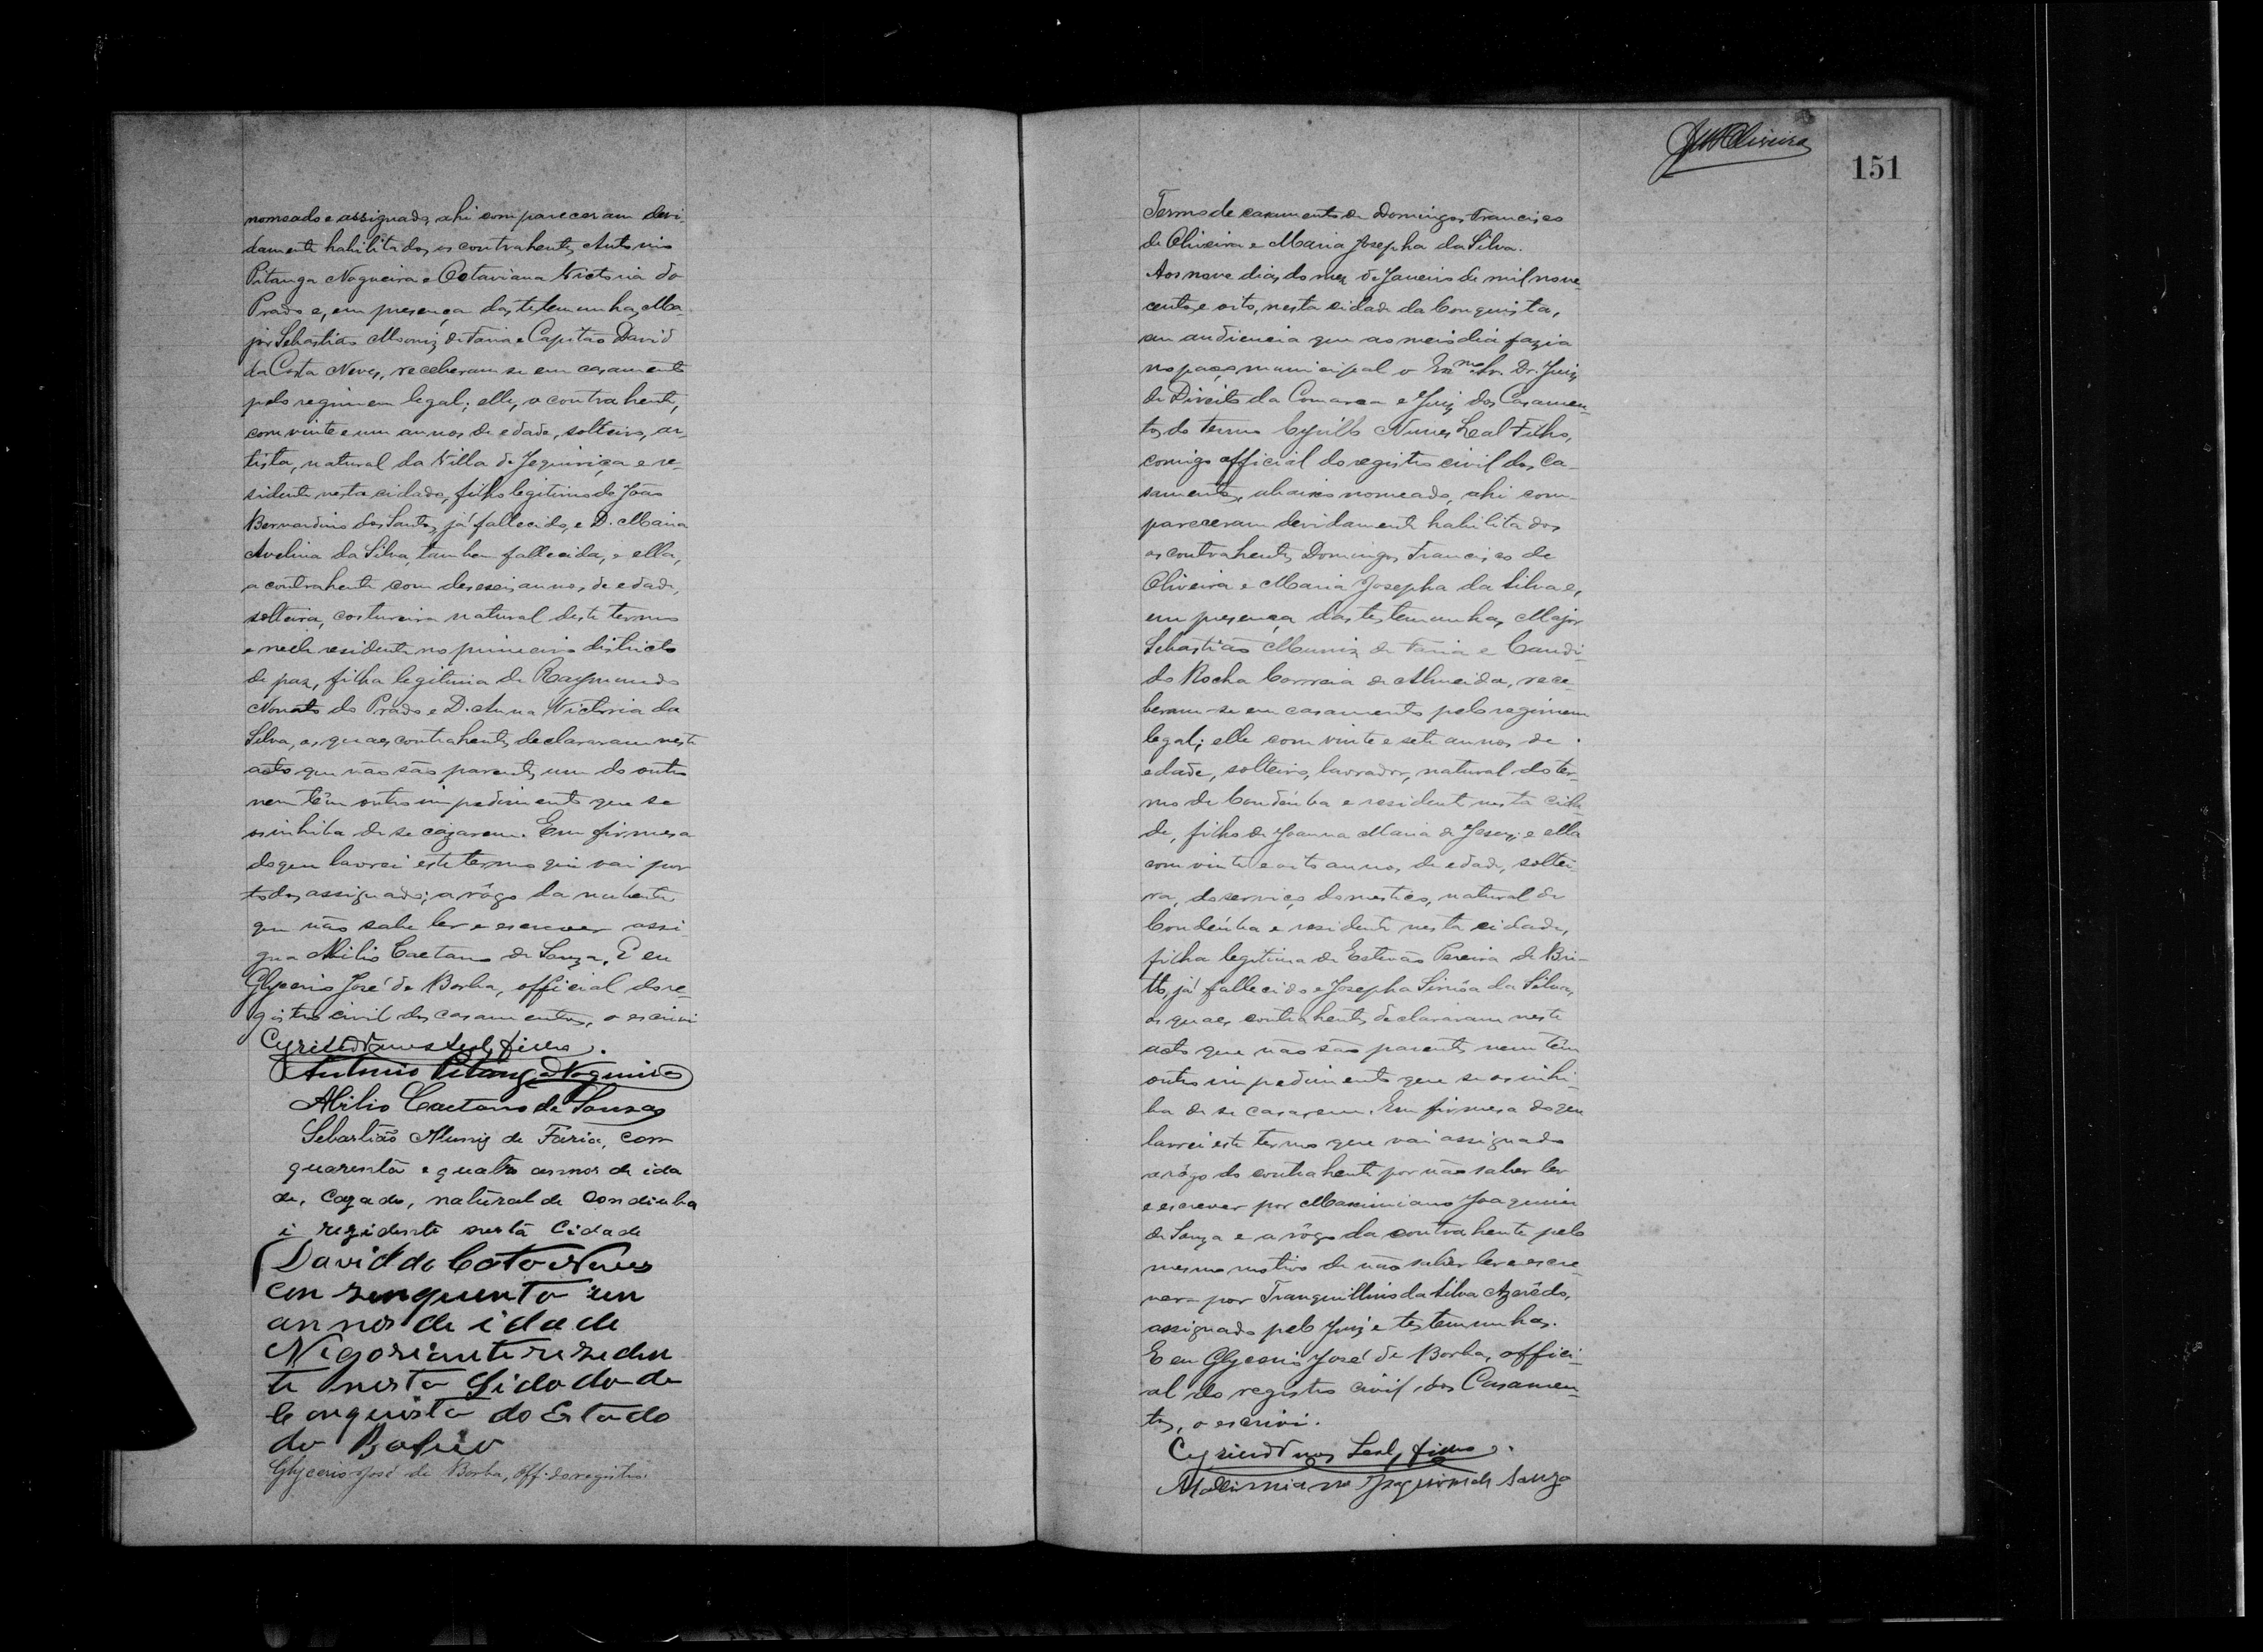 nomeado e assignado, ahi compareceram devi-
damente habilitados os contrahentes Antonio
Pitanga Nogueira e Octaviana Victoria do
Prado e, em presença das testemunhas Ma-
jor Sebastião Moniz de Faria e Capitão David
da Costa Neves, receberam-se em casamento
pelo regimem legal; elle, o contrahente,
com vinte e um annos de edade, solteiro, ar-
tista, natural da Villa de Jequiriça e re-
sidente nesta cidade, filho legitimo de João
Bernardino dos Santos, já fallecido, e D. Maria
Avelina da Silva, tambem fallecida, e ella,
a contrahente com deseseis annos de edade,
solteira, costureira natural deste termo
e nelle residente no primeiro districto
de paz, filha legitima de Raymundo
Nonato do Prado e D. Anna Victoria da
Silva, os quaes contrahentes declararam neste
acto que não são parentes um do outro
nem têm outro impedimento que se
os inhiba de se cazarem. Em firmesa
do que lavrei este termo que vai por
todos assignado; a rôgo da nubente
que não sabe ler e escrever assi-
gna Abilio Caetano de Souza. E eu
Glycerio José de Borba, official do re-
gistro civil dos casamentos, o escrivi
Cyrillo Nunes Leal filho.
Antonio Pitanga Nogueira
Abilio Caetano de Souza
Sebastião Muniz de Faria, com
quarenta e quatro annos de ida
de, cazado, natural de Condeuba
i rezidente nesta Cidade
David da Costa Neves
con sinquenta un
annos de idade
Nigosiante rezeden
te nesta Sidade da
Conquista do Estado
da Bahia
Glycerio José de Borba, Off. do registro
151
Termo de casamento de Domingos Francisco
de Oliveira e Maria Josepha da Silva.
Aos nove dias do mez de Janeiro de mil nove-
centos e oito, nesta cidade da Conquista,
em audiencia que ao meio dia fazia
no paço municipal o Exmo. Sr. Dr. Juiz
de Direito da Comarca e Juiz dos Casamen-
tos do termo Cyrillo Nunes Leal Filho,
comigo official do registro civil dos Ca-
samentos, abaixo nomeado, ahi com-
pareceram devidamente habilitados
os contrahentes Domingos Francisco de
Oliveira e Maria Josepha da Silva e,
em presença das testemunhas Major
Sebastião Muniz de Faria e Candi-
do Rocha Correia de Almeida, rece-
beram-se em casamento pelo regimem
legal; elle com vinte e sete annos de
edade, solteiro, lavrador, natural do ter-
mo de Condeúba e residente nesta cida-
de, filho de Joanna Maria de Jesus; e ella
com vinte e oito annos de edade, soltei-
ra, do serviço domestico, natural de
Condeúba e residente nesta cidade,
filha legitima de Estevão Pereira de Bri-
tto, já fallecido e Josepha Simôa da Silva,
os quaes contrahentes declararam neste
acto que não são parentes nem têm
outro impedimento que se os inhi-
ba de se casarem. Em firmesa do que
lavrei este termo que vai assignado
a rôgo do contrahente por não saber ler
e escrever por Maximiano Joaquim
de Souza e a rôgo da contrahente pelo
mesmo motivo de não saber ler e escre-
ver por Tranquillino da Silva Azevêdo,
assignado pelo Juiz e testemunhas.
E eu Glycerio José de Borba, offici-
al do registro civil dos Casamen-
tos, o escrivi.
Cyrillo Nunes Leal filho.
Maximiano Joaquim de Souza